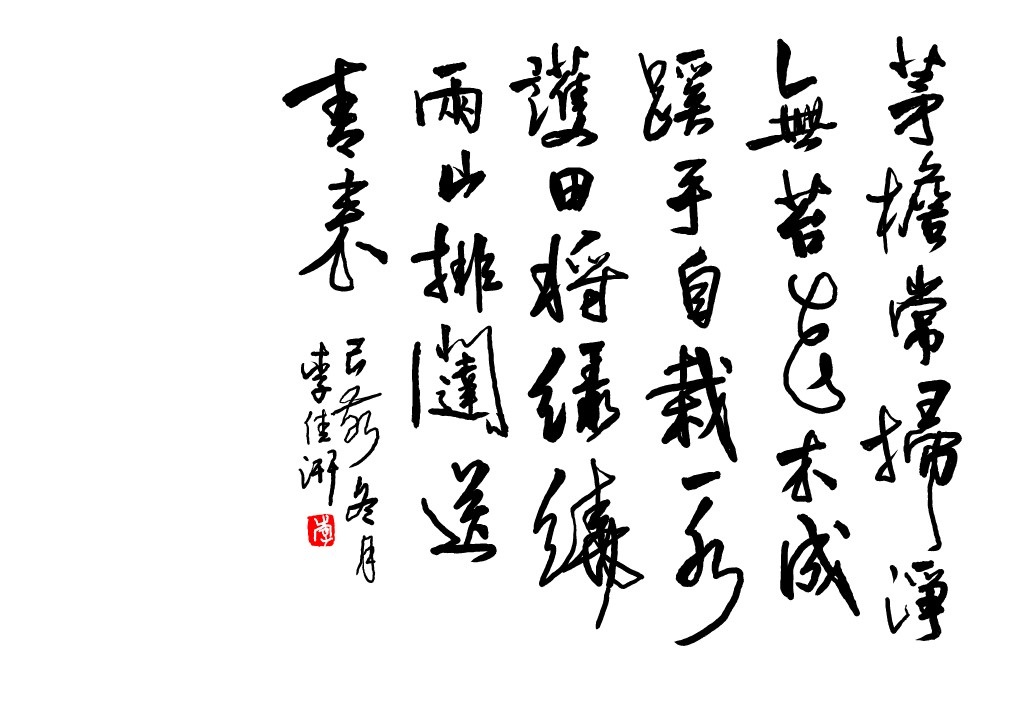 茅檐常掃淨
無苔花木成
蹊手自栽一水
護田將綠繞
兩山排闥送
青來
己亥冬月
李佳
李